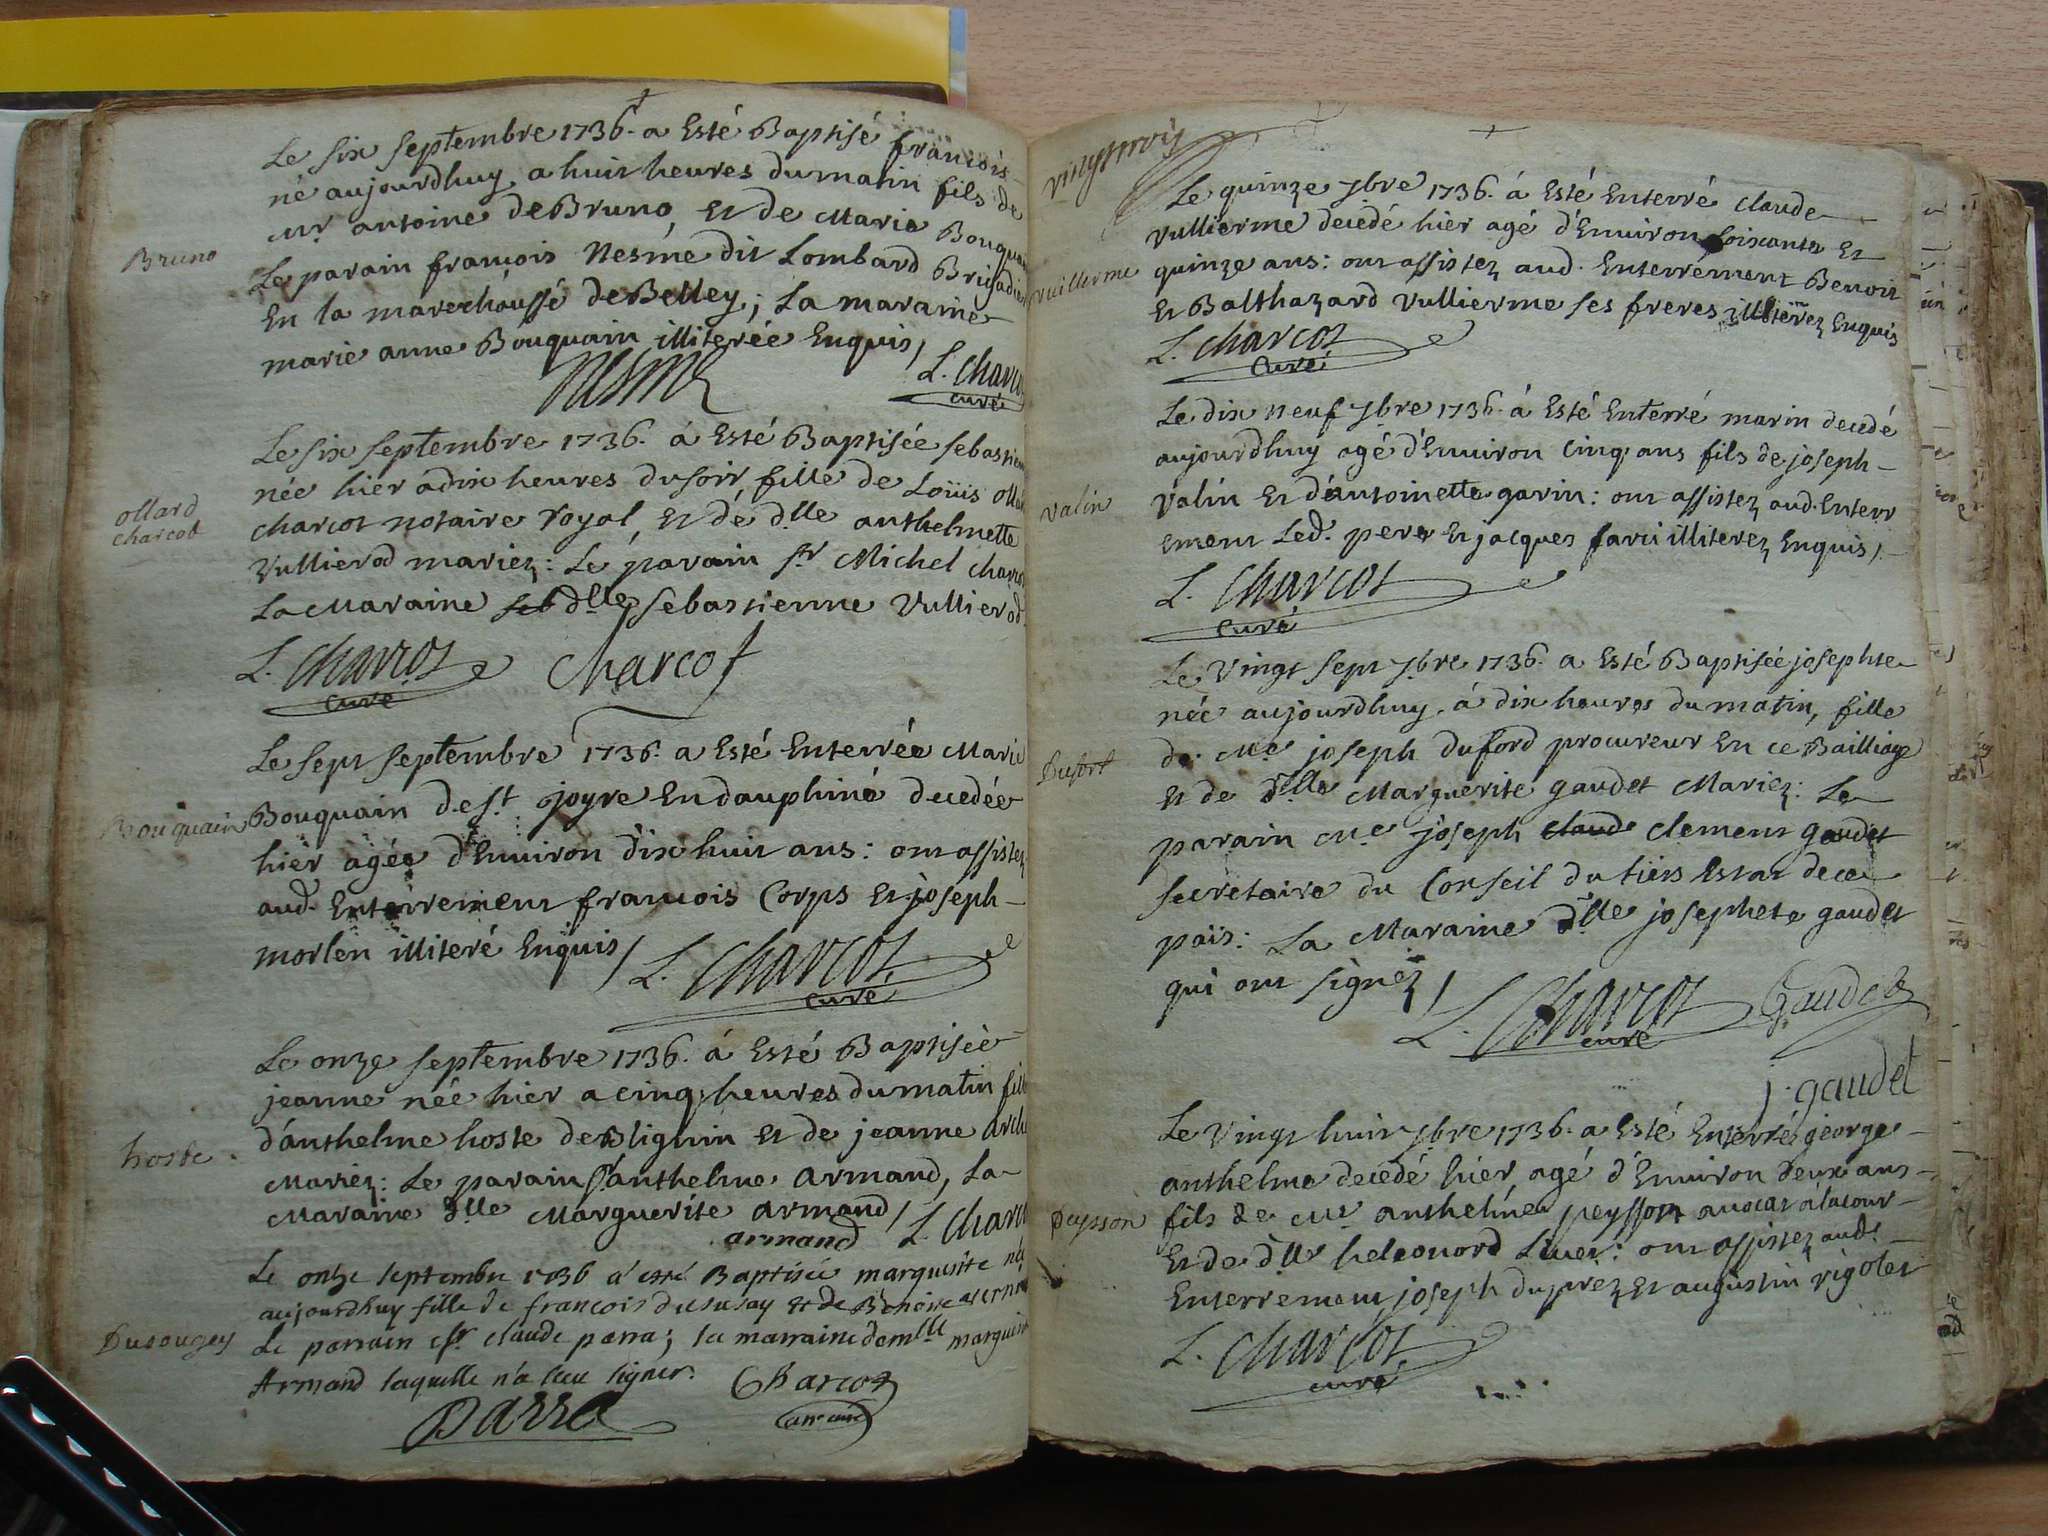 Le six septembre 1736. a Esté Baptisé francois
né aujourdhuy a huit heures du matin fils de
mr antoine de Bruno et de Marie Bouquain
Bruno
Le parain francois Nesme dit Lombard Brigadier
En la marechoussé de Belley; La maraine
marie anne Bouquain illiterée Enquis/
Nesme L. Charcot
curé
Le six septembre 1736. á Esté Baptisée sebastienne
née hier a dix heures du soir fille de Loüis ollard
ollard
charcot
charcot notaire royal et de dlle anthelmette
Vullierod mariez: Le parain sr Michel charcot
La Maraine dlle sebastienne Vullierod
L. Charcot Charcot
curé
Le sept septembre 1736. a Esté Enterrée Marie
Bouquain
Bouquain de st joyre En dauphiné decedée
hier agée d'Environ dix huit ans: ont assistez
aud. Enterrement francois Corps et joseph
morlen illiteré Enquis/ L. Charcot
curé
Le onze septembre 1736. á Esté Baptisée
jeanne née hier a cinq heures du matin fille
d'anthelme hoste de Blignin et de jeanne
hoste
Mariez: Le parain sr anthelme Armand, La
Maraine dlle Marguerite Armand/ L. Charcot
armand
Le onze septembre 1736 a esté Baptisée marguerite née
aujourdhuy fille de francois et de Benoite
Dusougey
Le parrain sr claude parra; la marraine demlle marguerite
Armand laquelle n'a sceu signer. Charcot
Parra
vingt trois
Le quinze 7bre 1736. á Esté Enterré claude
Vullierme decedé hier agé d'Environ soixante Et
vuillerme
quinze ans: ont assistez aud. Enterrement Benoit
et Balthazard Vullierme ses freres illiterez Enquis
L. Charcot
Curé
Le dix neuf 7bre 1736. á Esté Enterré marin decedé
aujourdhuy agé d'Environ cinq ans fils de joseph
valin
Valin et d'antoinette garin: ont assistez aud. Enterr
ement Led. pere et jacques farci illiterez Enquis/.
L. Charcot
Curé
Le Vingt sept 7bre 1736. a Esté Baptisée josephte
née aujourdhuy á dix heures du matin, fille
Dufort
de Me joseph duford procureur En ce Bailliage
et de dlle Marguerite gaudet Mariez: Le
parain Me joseph claude clement gaudet
secretaire du Conseil du tiers Estat de ce
païs: La Maraine dlle josephete gaudet
qui ont signez/ L. Charcot Gaudet
curé
j. gaudet
Le Vingt huit 7bre 1736. a Esté Enterré george
anthelme decedé hier agé d'Environ deux ans
Peysson
fils de Mr anthelme peysson avocat á la cour
et de dlle heleonord Liver: ont assistez aud.
Enterrement joseph duprez et augustin rigolet
L. Charcot
curé